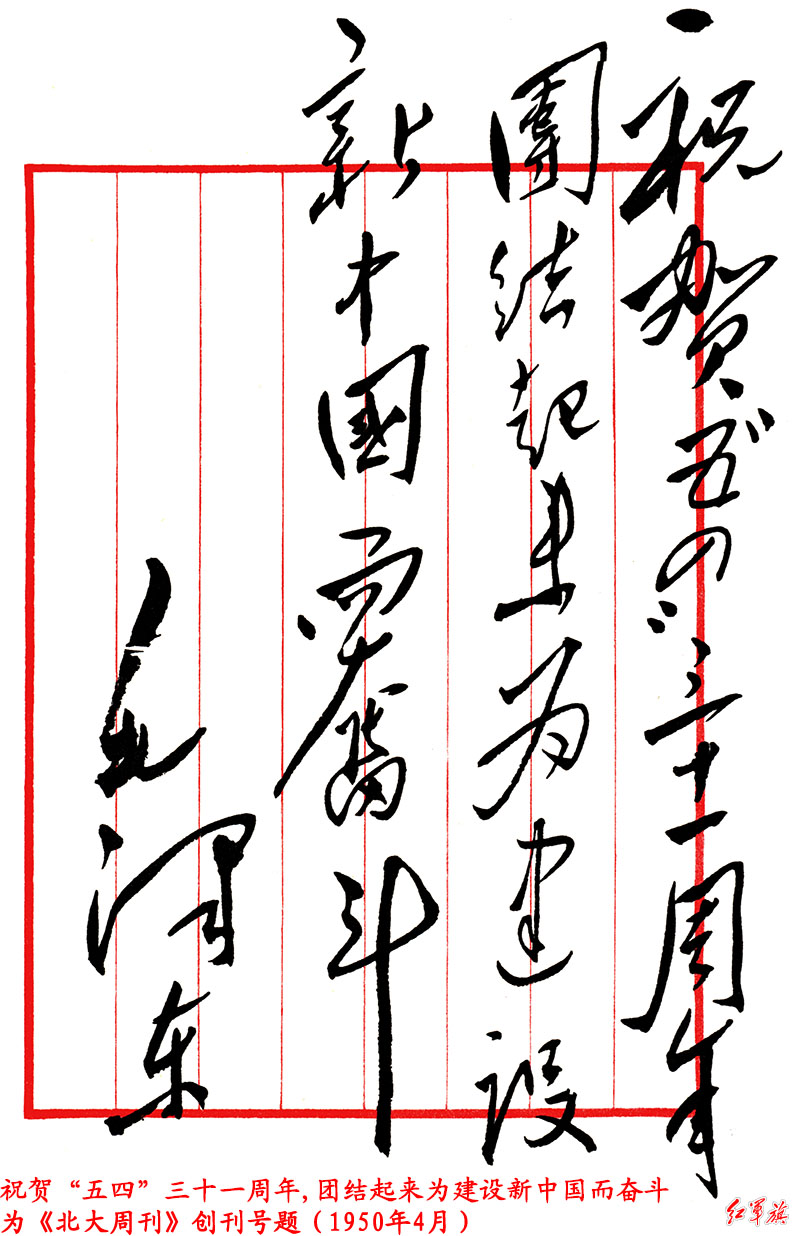 祝賀“五四”三十一周年
團结起来为建設
新中國而奮斗
毛澤东
祝贺“五四”三十一周年,团结起来为建设新中国而奋斗
为《北大周刊》创刊号题（1950年4月）
红军旗